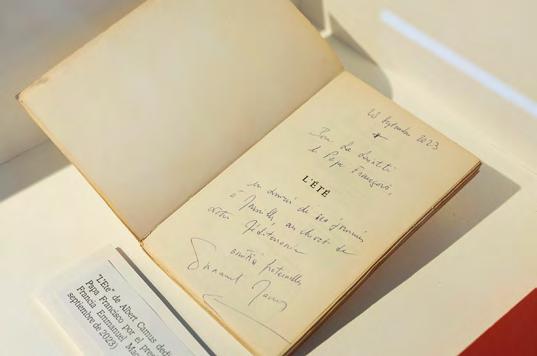 Septembre 2023
+
Pour Sa Sainteté
le Pape François,
L'ÉTÉ
en souvenir de ses journées
à Marseille, au chevet de
notre Méditerranée
amitié fraternelle
Emmanuel Macron
"L'Été" de Albert Camus dedi
Papa Francisco por el pres
Francia Emmanuel Mac
septiembre de 2023)